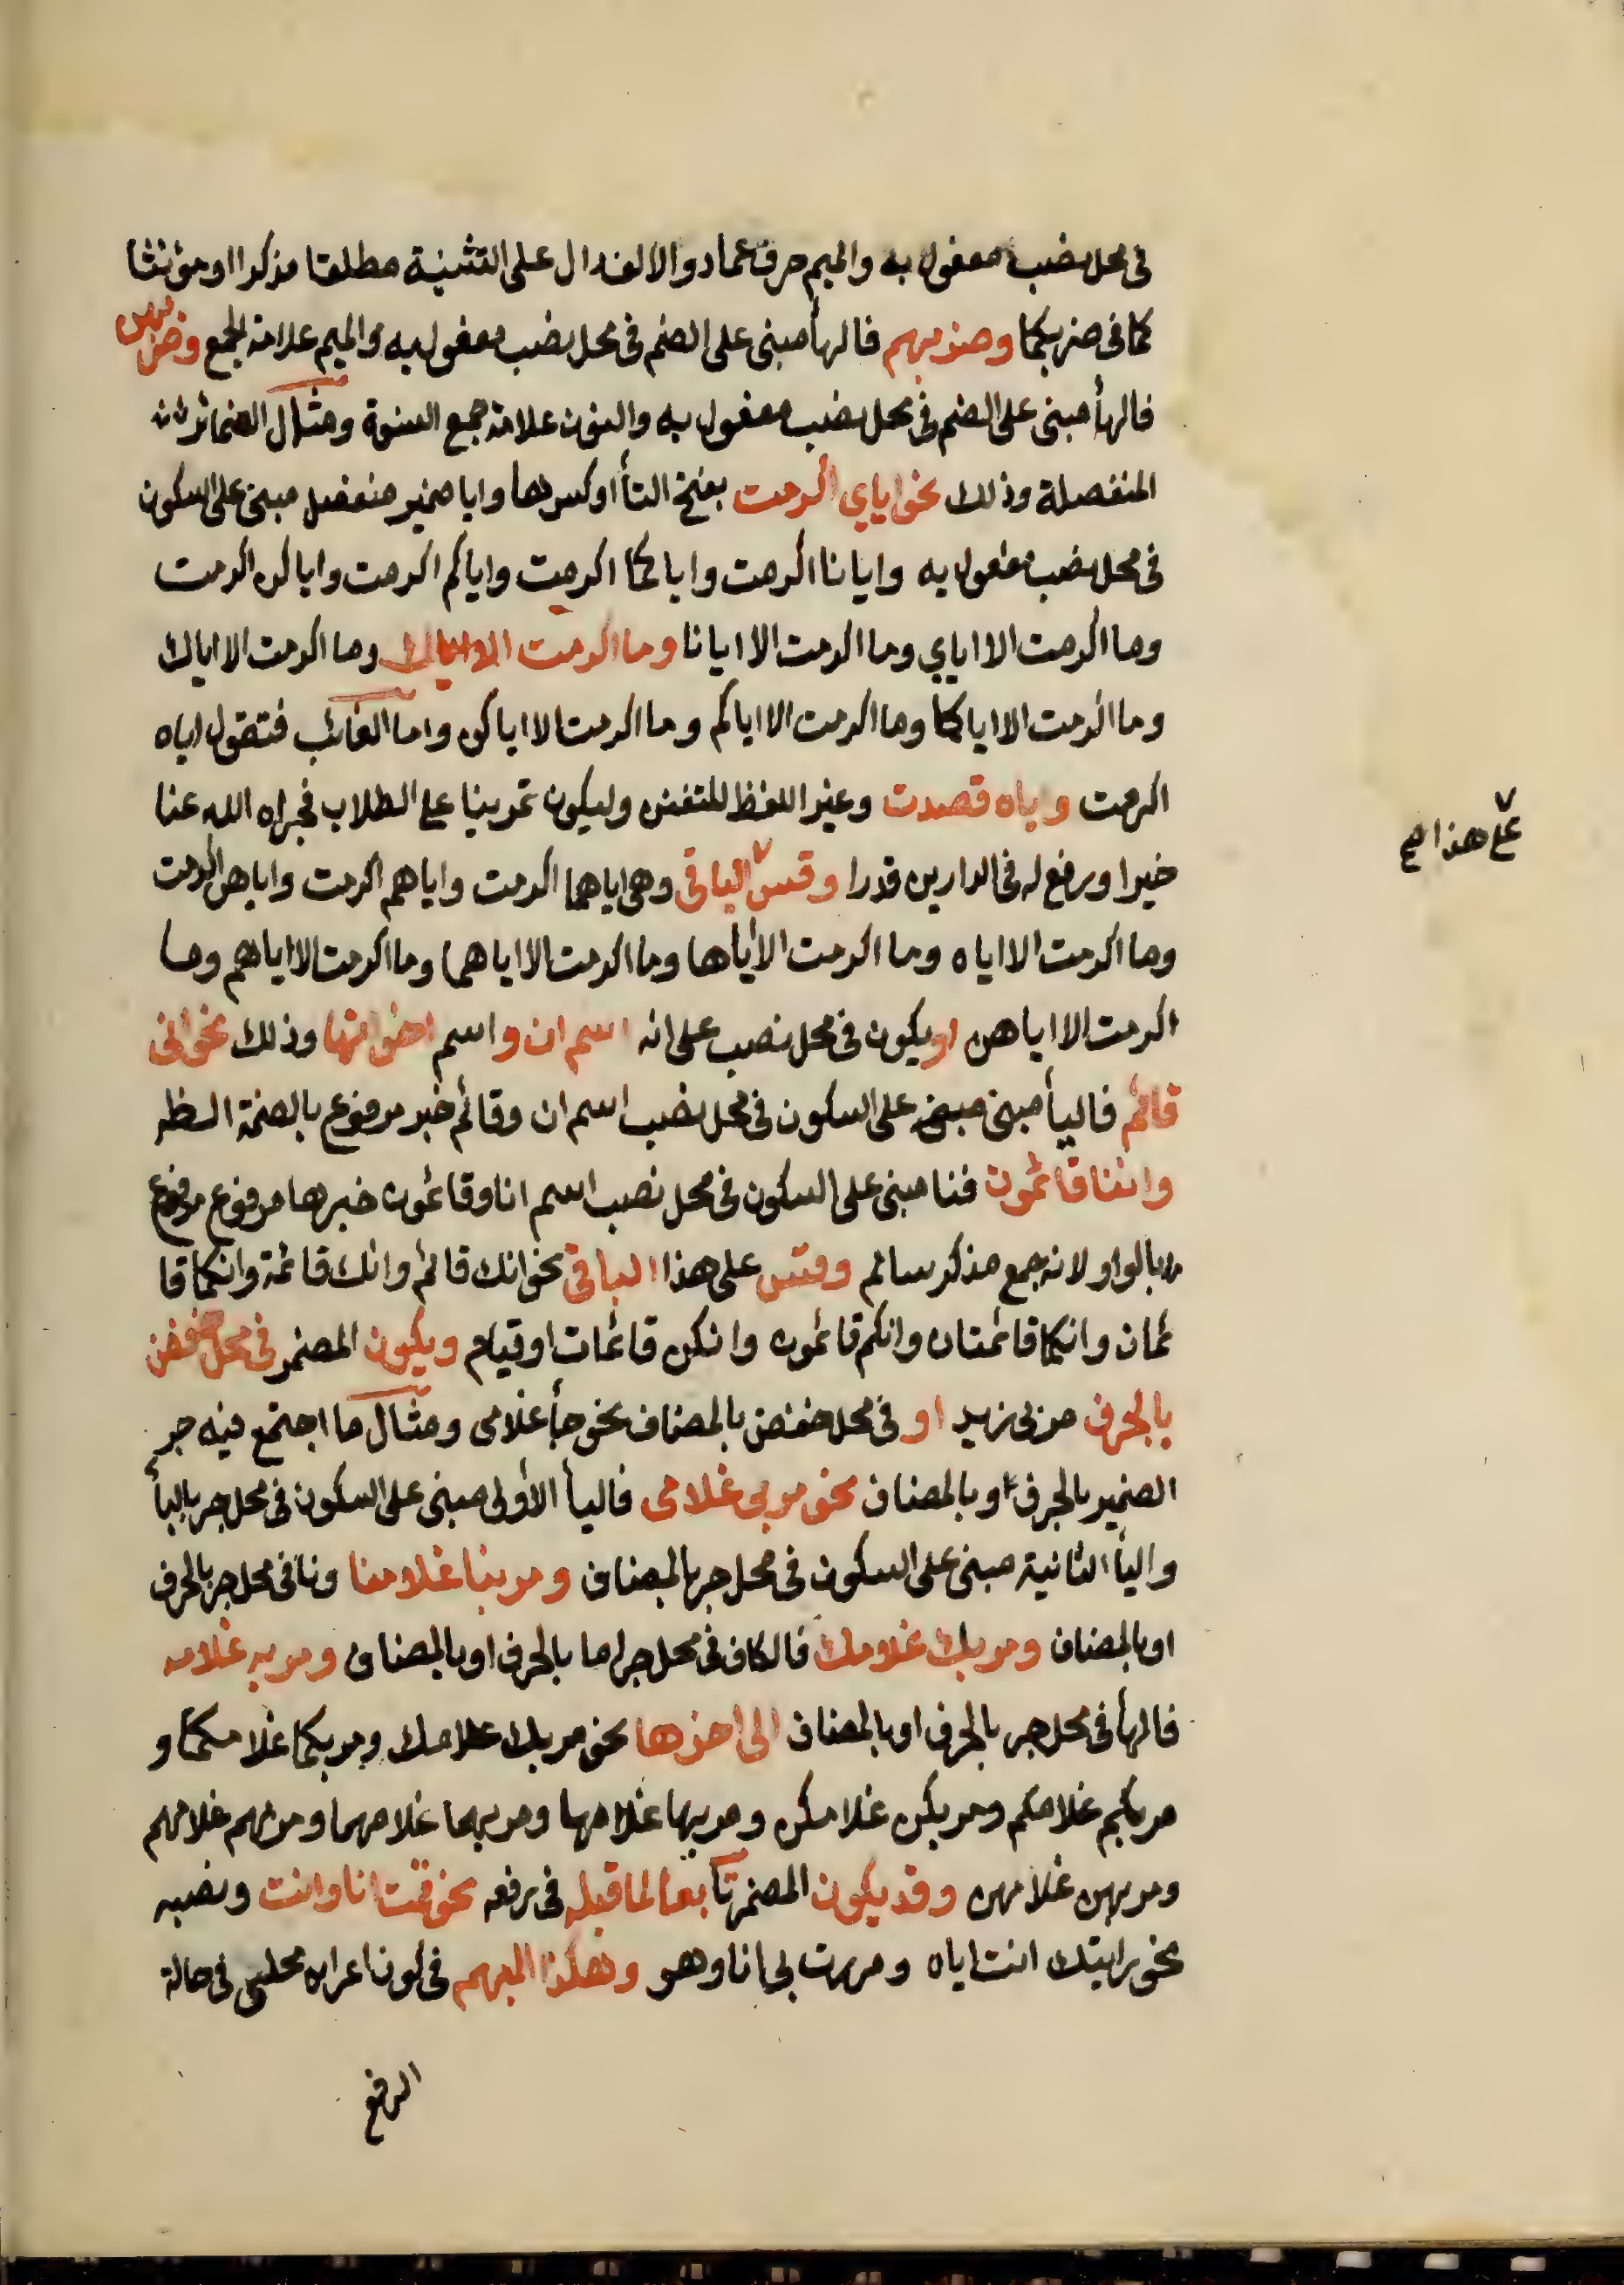 فى محل نصب مفعول به والميم حرف عماد والالف دال على التثنية مطلقا مذكرا او مؤنثا
كما فى ضربكما وضربهم فالهأ مبنى على الضم فى محل نصب مفعول به والميم علامة الجمع وضربهن
فالهأ مبنى على الضم فى محل نصب مفعول به والنون علامة جمع النسوة ومثال الضمائر
المنفصلة وذلك نحو اياي اكرمت بفتح التأ او كسرها وايا ضمير منفصل مبنى على السكون
فى محل نصب مفعول به وايانا اكرمت واياكما اكرمت واياكم اكرمت واياكن اكرمت
وما اكرمت الا اياي وما اكرمت الا ايانا وما اكرمت الا اياك وما اكرمت الا اياك
وما اكرمت الا اياكما وما اكرمت الا اياكم وما اكرمت الا اياكن واما الغائب فتقول اياه
اكرمت واياه قصدت وغير اللفظ للتفنن وليكون تمرينا على الطلاب فجزاه الله عنا
خيرا ورفع له فى الدارين قدرا وقس الباقى وهى اياهما اكرمت واياهم اكرمت واياهن اكرمت
على هذا صح
وما اكرمت الا اياه وما اكرمت الا اياها وما اكرمت الا اياهما وما اكرمت الا اياهم وما
اكرمت الا اياهن او يكون فى محل نصب على انه اسم ان واسم اخواتها وذلك نحو انى
قائم فاليأ مبنى مبنى على السكون فى محل نصب اسم ان وقائم خبر مرفوع بالضمة الظه
واننا قائمون فنا مبنى على السكون فى محل نصب اسم انا وقائمون خبرها مرفوع مرفوع
بالواو لانه جمع مذكر سالم وقس على هذا الباقى نحو انك قائم وانك قائمة وانكما قا
ئمان وانكما قائمتان وانكم قائمون وانكن قائمات او قيام ويكون المضمر فى محل خفض
بالحرف مر بى زيد او فى محل خفض بالمضاف نحو جأ غلامى ومثال ما اجتمع فيه جر
الضمير بالحرف او بالمضاف نحو مر بى غلامى فاليأ الأولى مبنى على السكون فى محل جر بالبأ
واليأ الثانية مبنى على السكون فى محل جر بالمضاف ومر بنا غلامنا ونا فى محل جر بالحرف
او بالمضاف ومر بك غلامك فالكاف فى محل جر اما بالحرف او بالمضاف ومر به غلامه
فالهأ فى محل جر بالحرف او بالمضاف الى اخرها نحو مر بك غلامك ومر بكما غلامكما و
مر بكم غلامكم ومر بكن غلامكن ومر بها غلامها ومر بهما غلامهما ومر بهم غلامهم
ومر بهن غلامهن وقد يكون المضمر تابعا لما قبله فى رفعه نحو قمت انا وانت ونصبه
نحو رايتك انت اياه ومررت بى انا وهو وهكذا المبهم فى كون اعرابه محلى فى حالة
الرفع